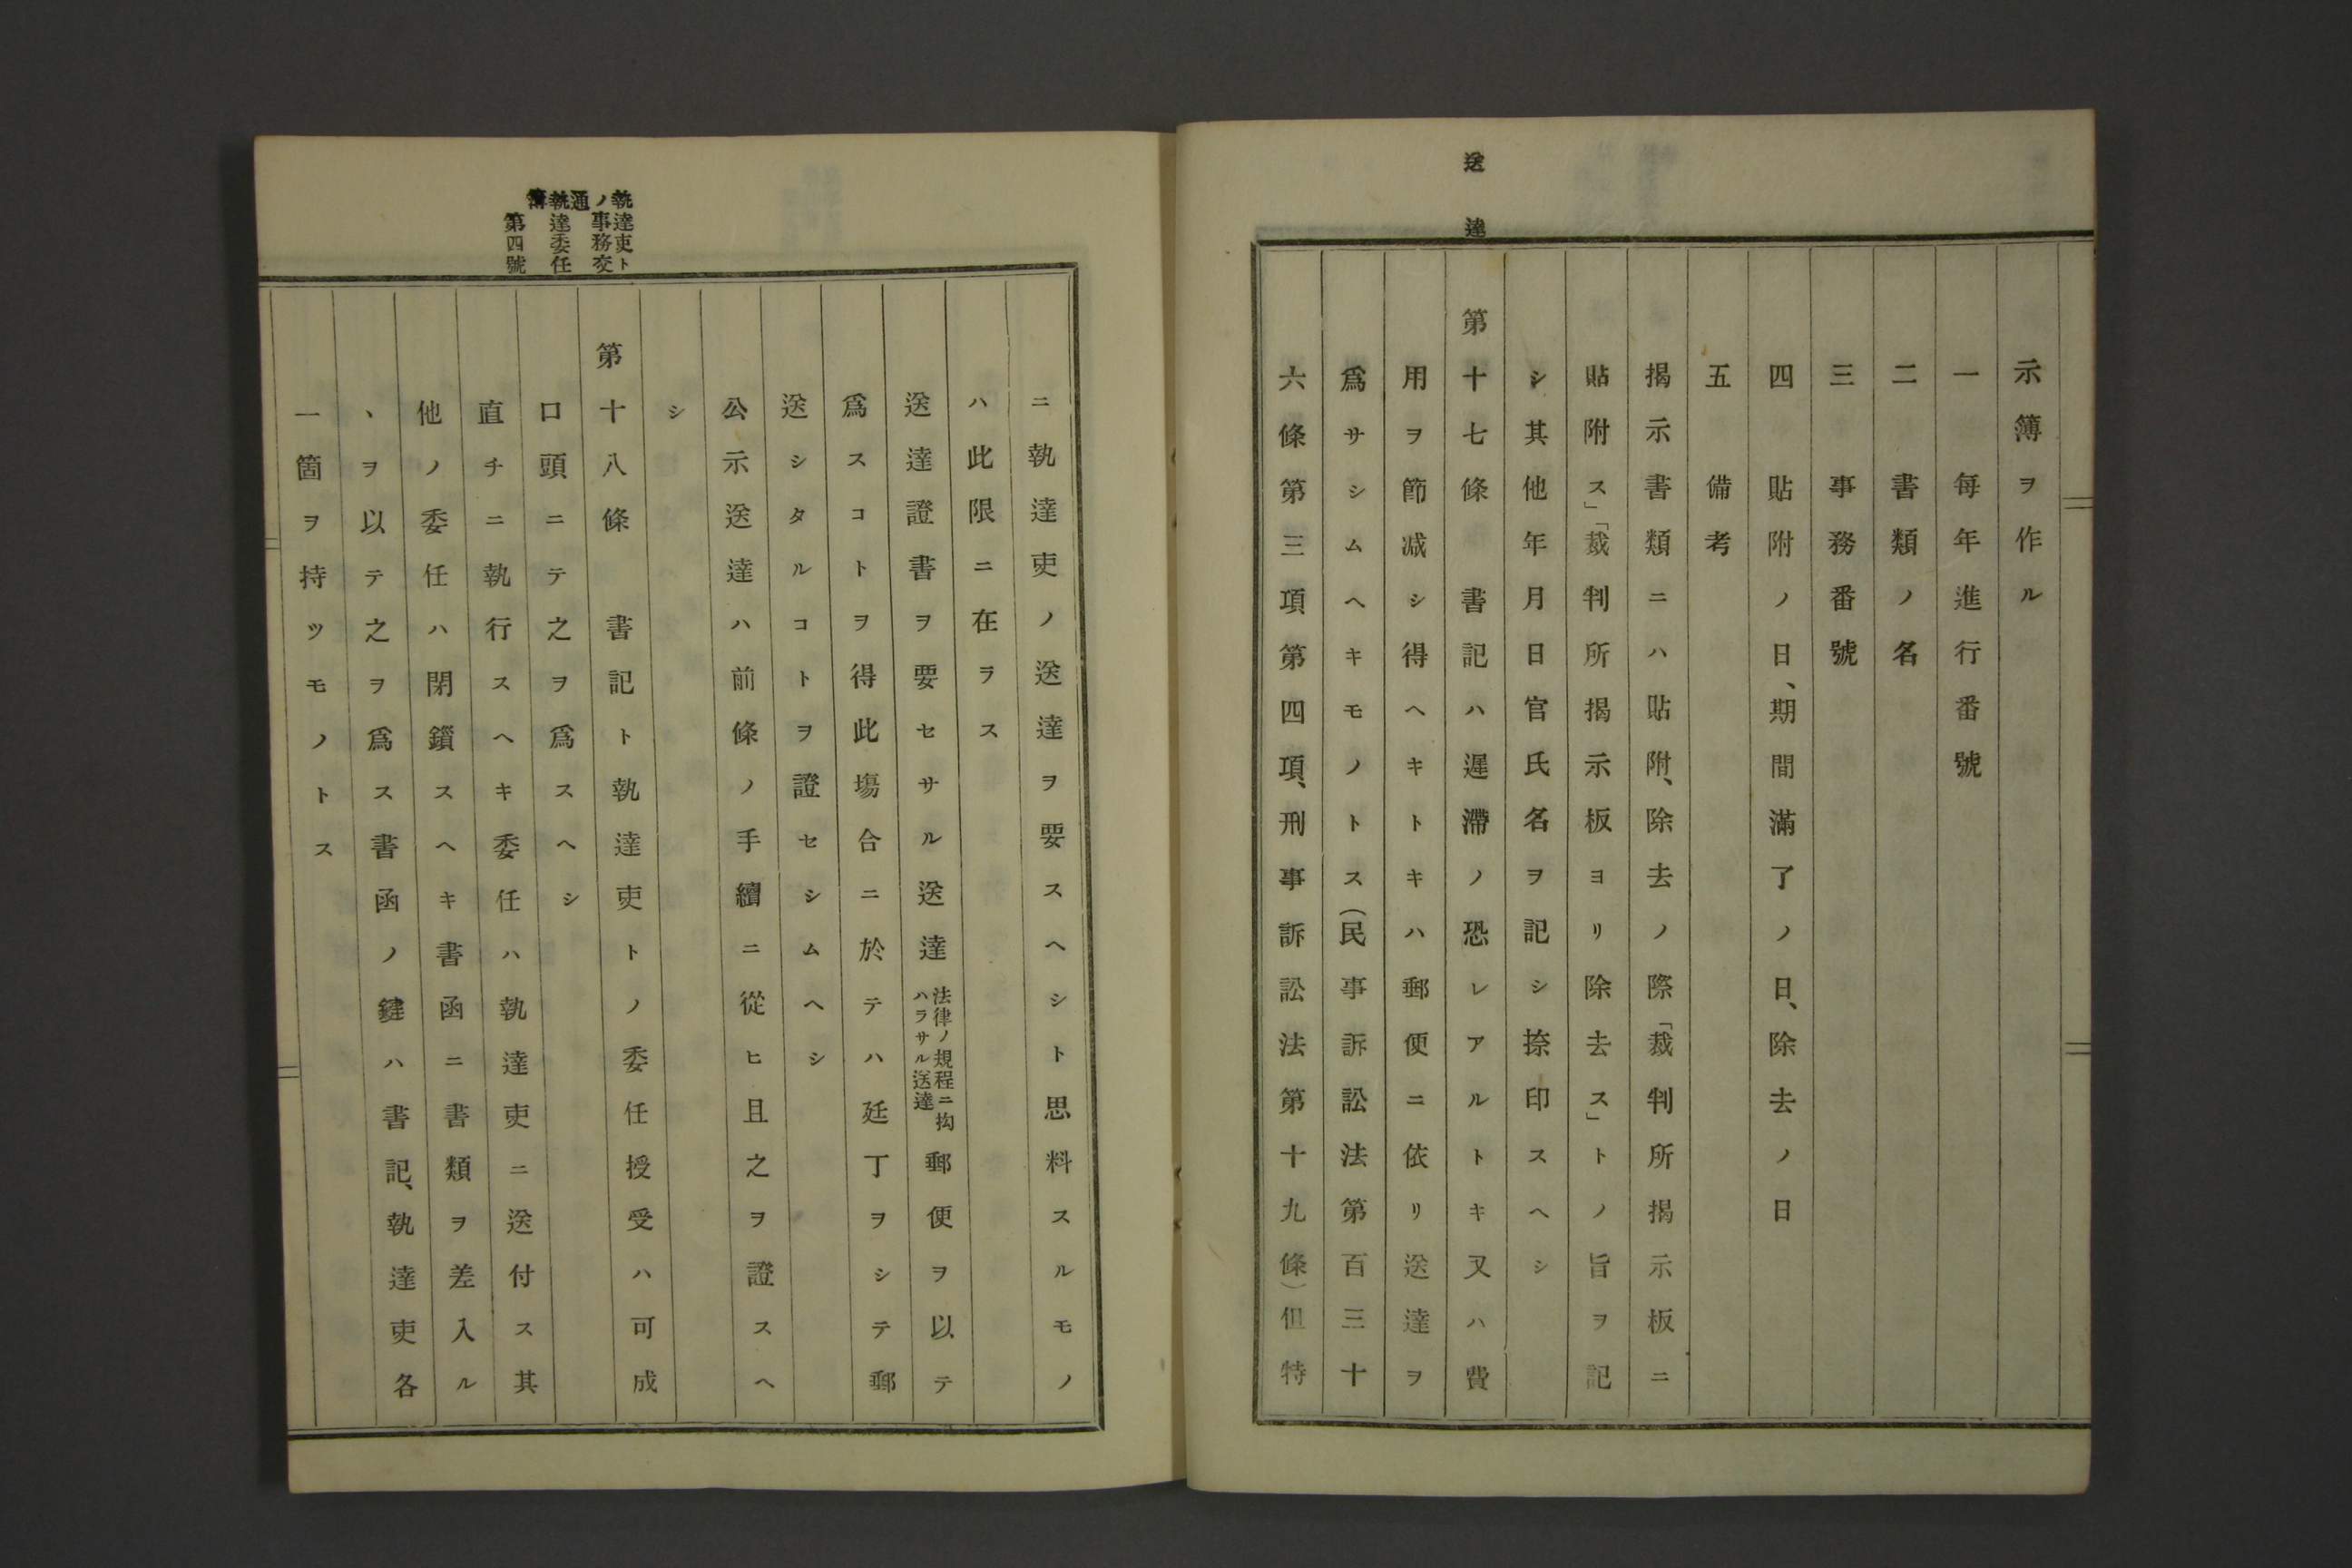 送達
示簿ヲ作ル
一　每年進行番號
二　書類ノ名
三　事務番號
四　貼附ノ日、期間滿了ノ日、除去ノ日
五　備考
揭示書類ニハ貼附、除去ノ際「裁判所揭示板ニ
貼附ス」「裁判所揭示板ヨリ除去ス」トノ旨ヲ記
シ其他年月日官氏名ヲ記シ捺印スヘシ
第十七條　書記ハ遲滯ノ恐レアルトキ又ハ費
用ヲ節減シ得ヘキトキハ郵便ニ依リ送達ヲ
爲サシムヘキモノトス（民事訴訟法第百三十
六條第三項第四項、刑事訴訟法第十九條）但特
執達吏ト
ノ事務交
通
執達委任
簿
第四號
ニ執達吏ノ送達ヲ要スヘシト思料スルモノ
ハ此限ニ在ラス
送達證書ヲ要セサル送達法律ノ規程ニ拘ハラサル送達郵便ヲ以テ
爲スコトヲ得此塲合ニ於テハ廷丁ヲシテ郵
送シタルコトヲ證セシムヘシ
公示送達ハ前條ノ手續ニ從ヒ且之ヲ證スヘ
シ
第十八條　書記ト執達吏トノ委任授受ハ可成
口頭ニテ之ヲ爲スヘシ
直チニ執行スヘキ委任ハ執達吏ニ送付ス其
他ノ委任ハ閉鎖スヘキ書函ニ書類ヲ差入ル
ヽヲ以テ之ヲ爲ス書函ノ鍵ハ書記、執達吏各
一箇ヲ持ツモノトス